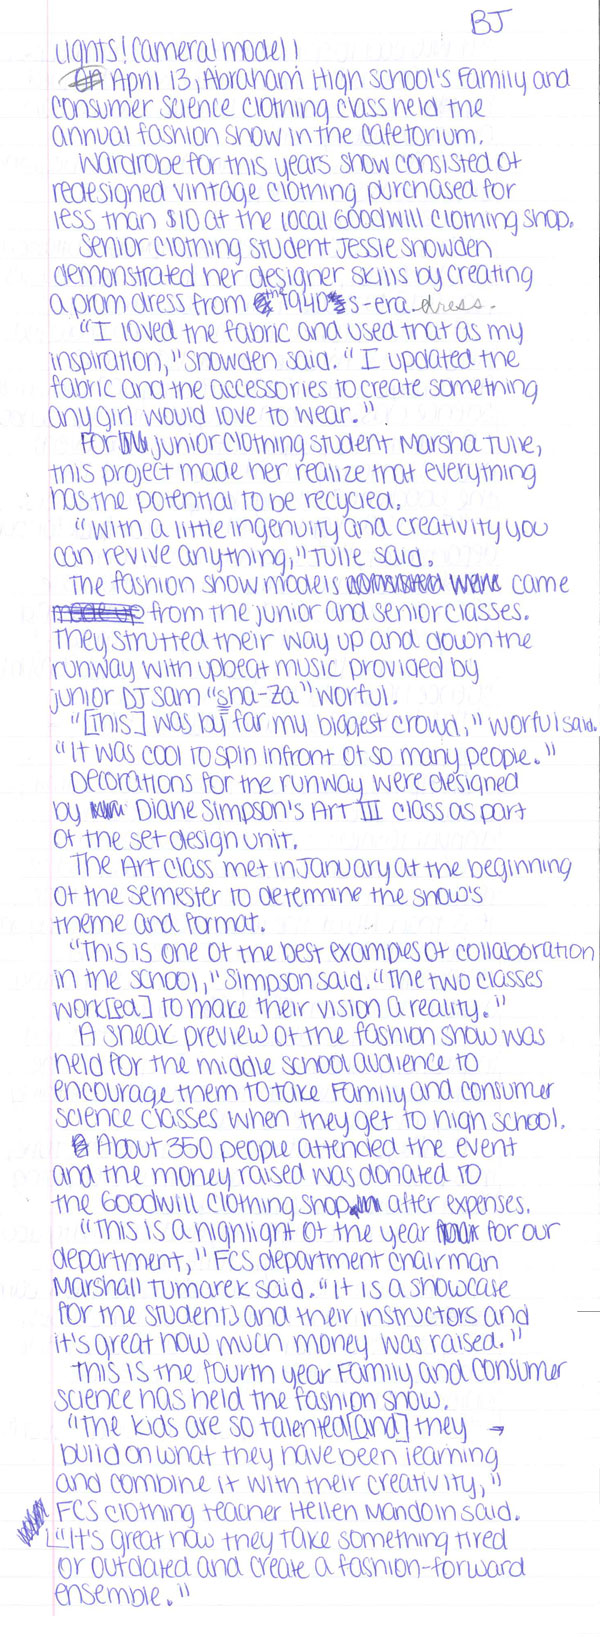 BJ
Lights! Camera! Model!
April 13, Abraham High School's Family and
Consumer Science Clothing Class held the
annual fashion show in the cafetorium.
Wardrobe for this years show consisted of
redesigned vintage clothing purchased for
less than $10 at the local Goodwill Clothing Shop.
Senior Clothing student Jessie Snowden
demonstrated her designer skills by creating
a prom dress from the 1940s-era dress.
"I loved the fabric and used that as my
inspiration," Snowden said. "I updated the
fabric and the accessories to create something
any girl would love to wear."
For junior Clothing student Marsha Tulle,
this project made her realize that everything
has the potential to be recycled.
"With a little ingenuity and creativity you
can revive anything," Tulle said.
The fashion show models came
from the junior and senior classes.
They strutted their way up and down the
runway with upbeat music provided by
junior DJ Sam "sha-za" Worful.
"[This] was by far my biggest crowd," Worful said.
"It was cool to spin infront of so many people."
Decorations for the runway were designed
by Diane Simpson's Art III class as part
of the set design unit.
The Art class met in January at the beginning
of the semester to determine the show's
theme and format.
"This is one of the best examples of collaboration
in the school," Simpson said. "The two classes
work[ed] to make their vision a reality."
A sneak preview of the fashion show was
held for the middle school audience to
encourage them to take Family and Consumer
Science classes when they get to high school.
About 350 people attended the event
and the money raised was donated to
the Goodwill Clothing Shop after expenses.
"This is a highlight of the year for our
department," FCS department chairman
Marshall Tumarek said. "It is a showcase
for the students and their instructors and
it's great how much money was raised."
This is the fourth year Family and Consumer
Science has held the fashion show.
"The kids are so talented [and] they →
build on what they have been learning
and combine it with their creativity,"
FCS Clothing teacher Hellen Mandoin said.
"It's great how they take something tired
or outdated and create a fashion-forward
ensemble."